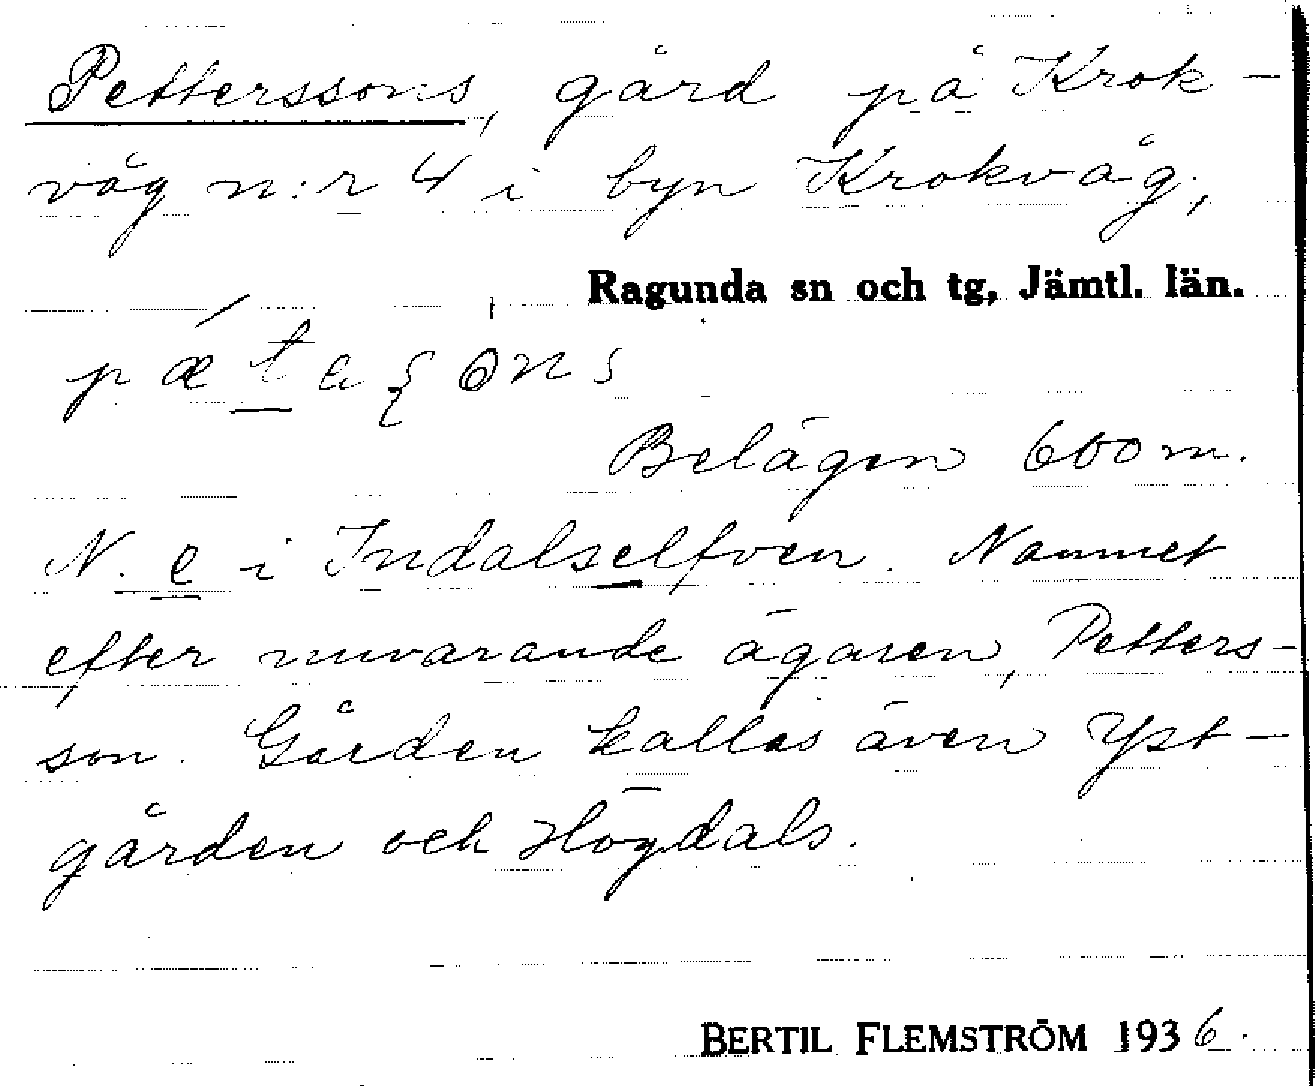 Petterssons, gård på Krok-
våg n:r 4 i byn Krokvåg,
Ragunda sn och tg, Jämtl. län.
Belägen 600 m.
N. e i Indalselfven. Namnet
efter nuvarande ägaren, Petters-
son. Gården kallas även Yst-
gården och Högdals.
BERTIL FLEMSTRÖM 1936.